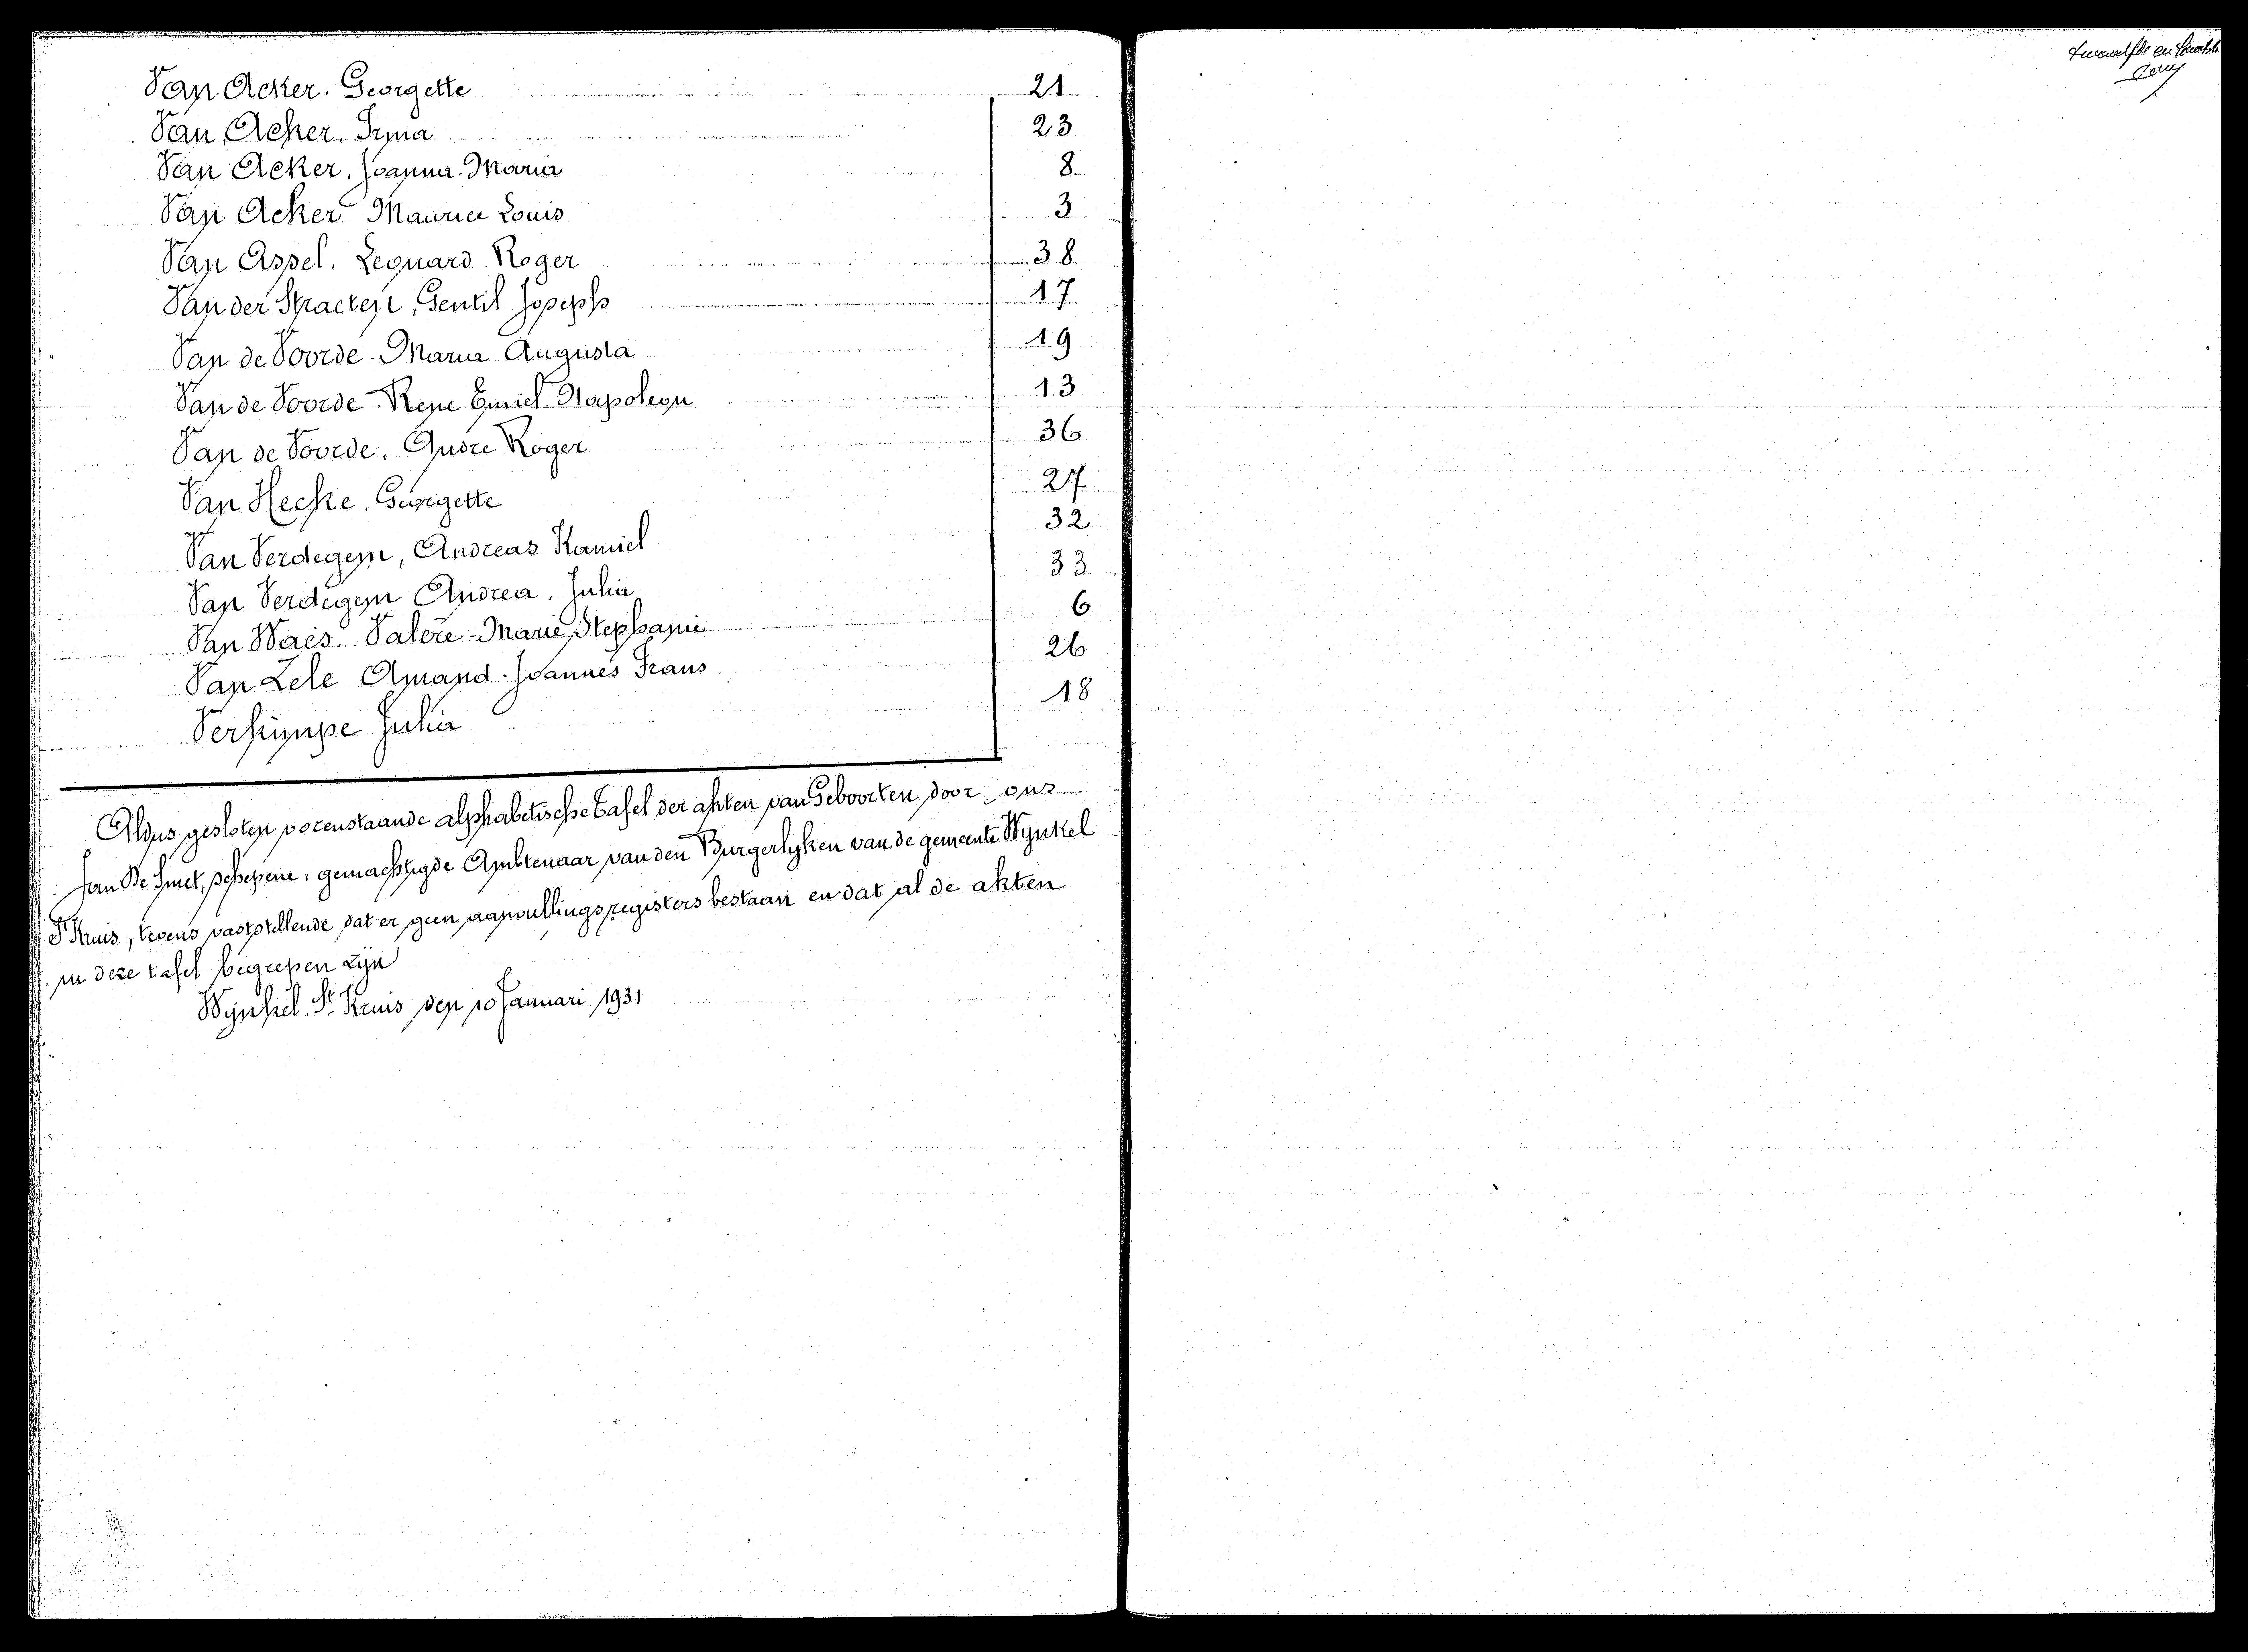 Van Acker. Georgette 21
Van Acker. Irma 23
Van Acker, Joanna-Maria 8
Van Acker Maurice Louis 3
Van Assel. Leonard Roger 38
Van der Straeten, Gentil Joseph 17
Van de Voorde-Maria Augusta 19
Van de Voorde-Rene Emiel-Napoleon 13
Van de Voorde. Andre Roger 36
Van Hecke. Georgette 27
Van Verdegem, Andreas Kamiel 32
Van Verdegem Andrea. Julia 33
Van Waes. Valere-Marie Stephanie 6
Van Zele Amand-Joannes Frans 26
Verkimpe Julia 18
Aldus gesloten vorenstaande alphabetische tafel der akten van Geboorten door ons
Jan De Smet, schepene, gemachtigde Ambtenaar van den Burgerlyken van de gemeente Wynkel
St Kruis, tevens vaststellende dat er geen aanvullingsregisters bestaan en dat al de akten
in deze tafel begrepen zyn
Wynkel St Kruis den 10 Januari 1931